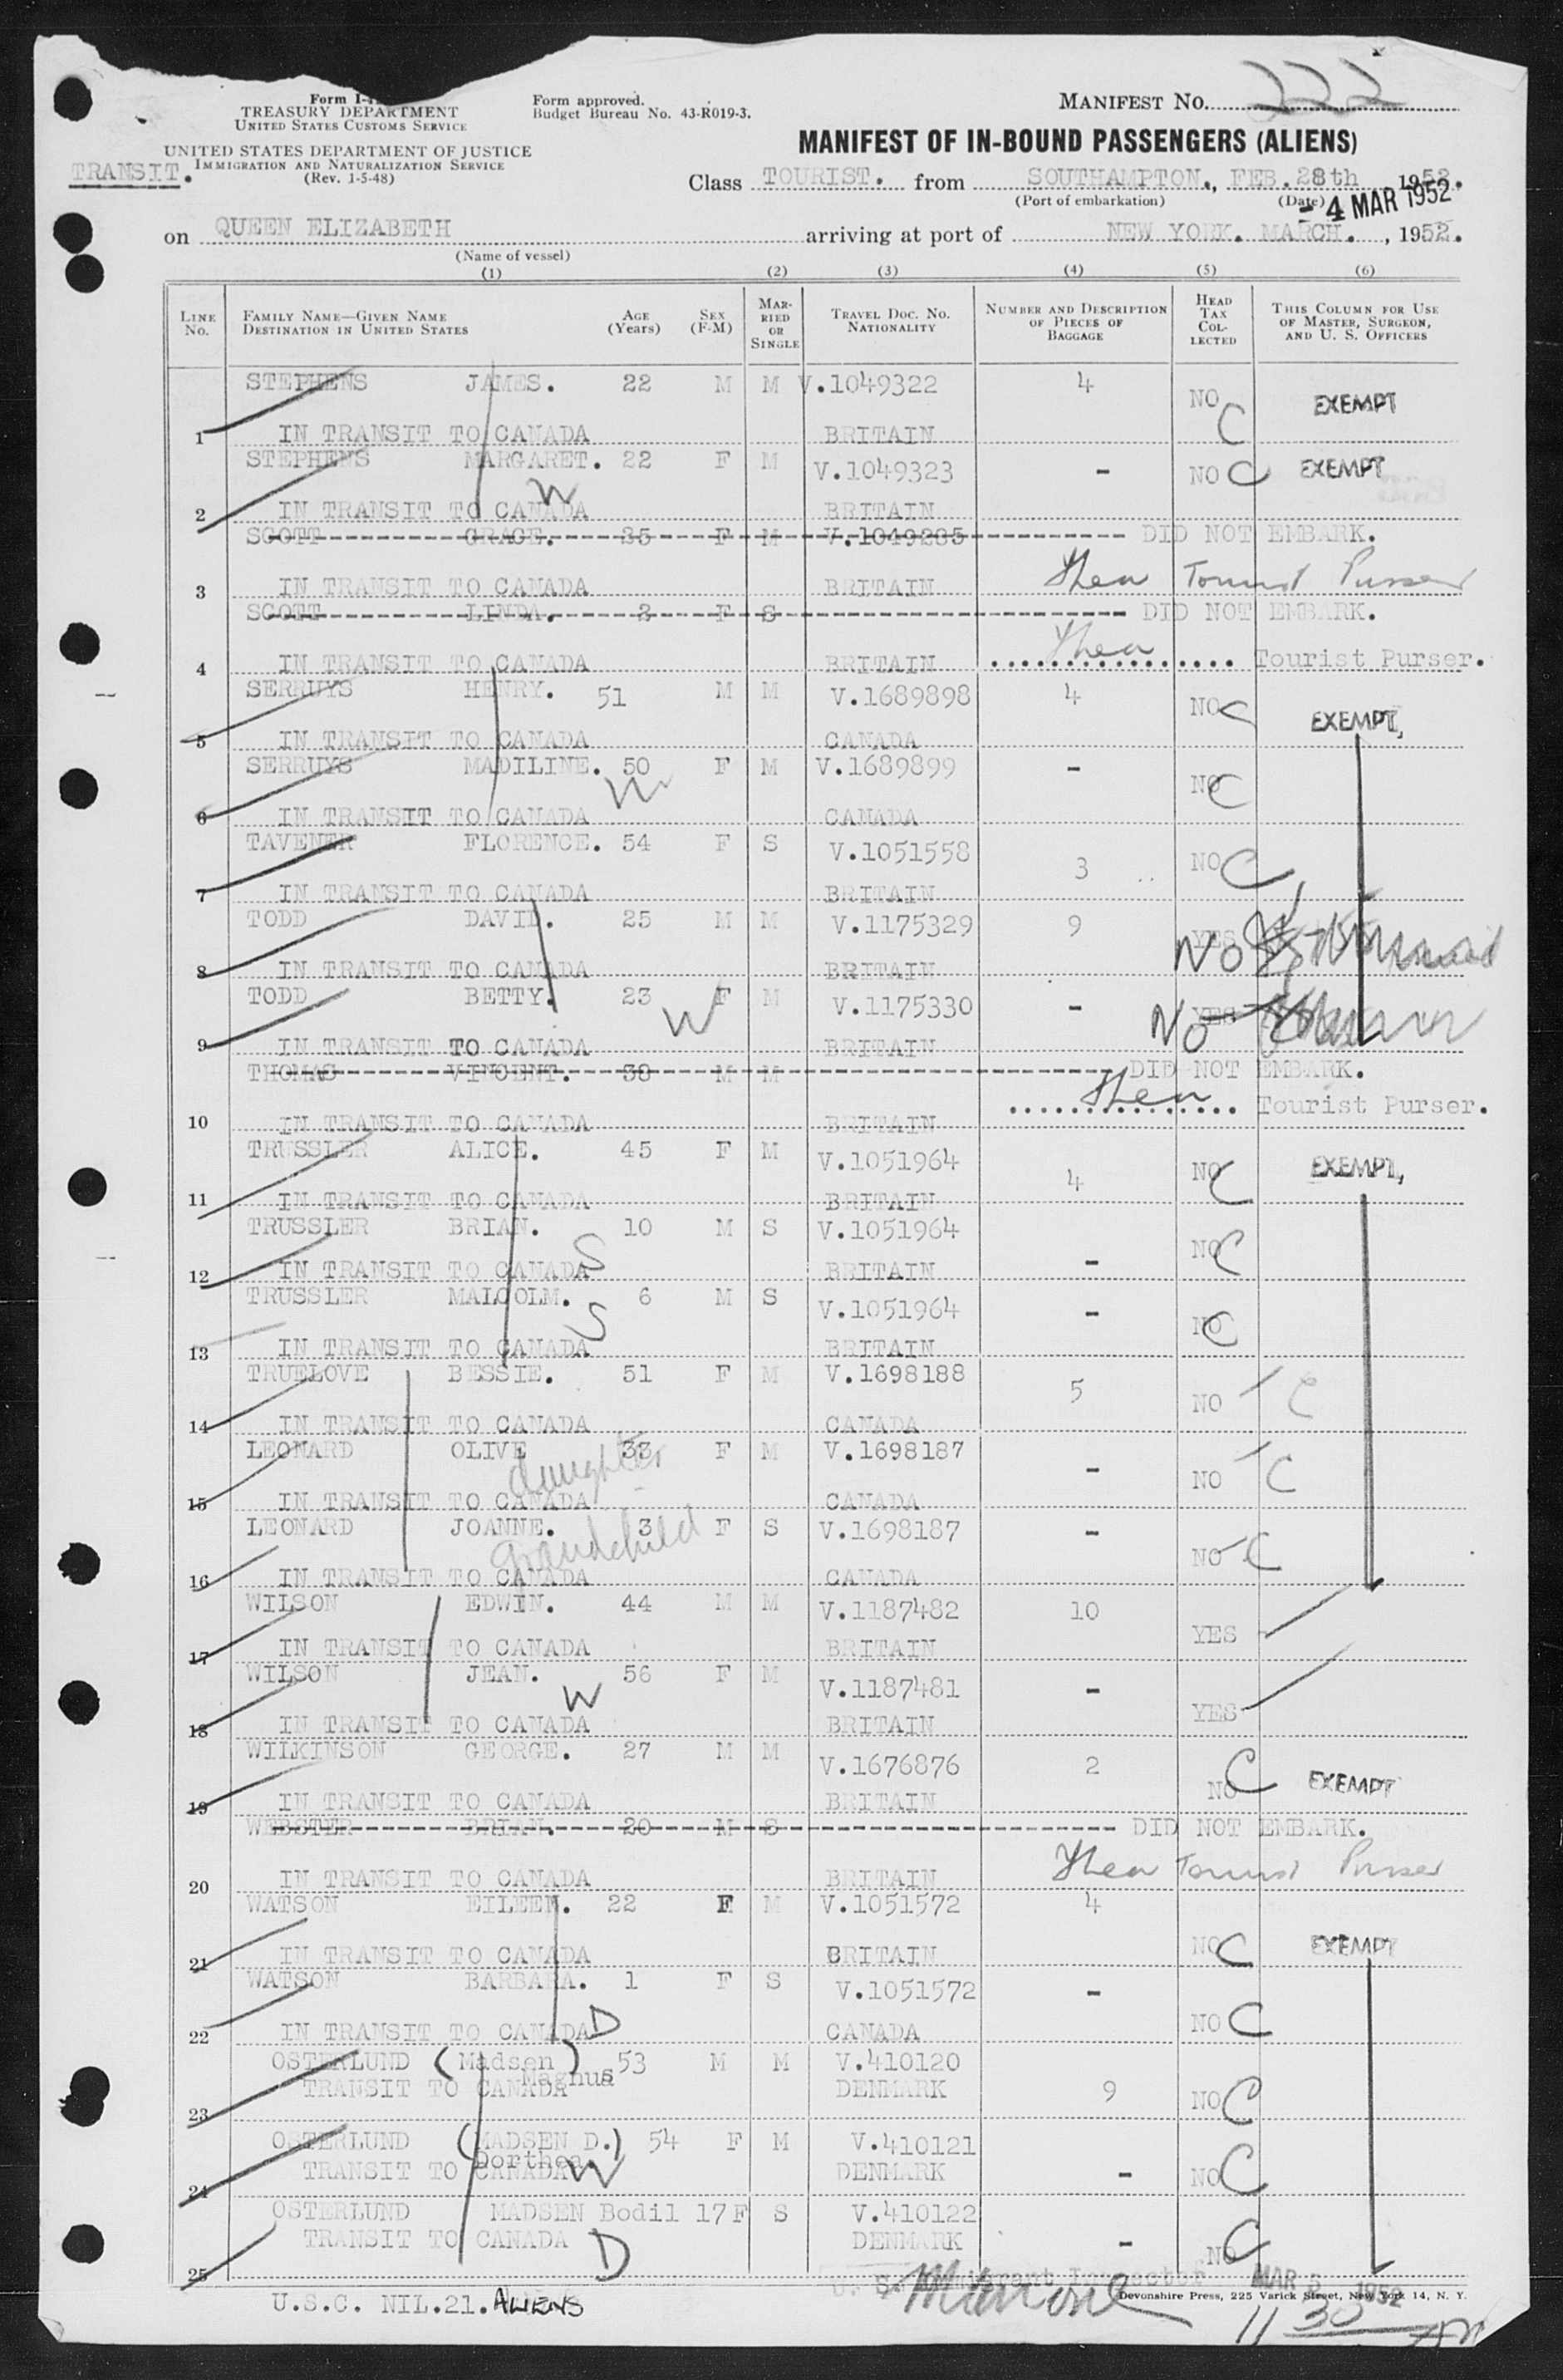 MANIFEST NO. 222
TREASURY DEPARTMENT
UNITED STATES CUSTOMS SERVICE
Form approved.
Budget Bureau No. 43-R019-3.
UNITED STATES DEPARTMENT OF JUSTICE
IMMIGRATION AND NATURALIZATION SERVICE
(Rev. 1-5-48)
TRANSIT.
MANIFEST OF IN-BOUND PASSENGERS (ALIENS)
Class TOURIST. from SOUTHAMPTON., FEB. 28th 1952.
(Port of embarkation) (Date)
- 4 MAR 1952
on QUEEN ELIZABETH arriving at port of NEW YORK. MARCH. , 1952.
(Name of vessel)
(1) (2) (3) (4) (5) (6)
LINE NO. FAMILY NAME—GIVEN NAME DESTINATION IN UNITED STATES AGE (Years) SEX (F-M) MARRIED OR SINGLE TRAVEL DOC. NO. NATIONALITY NUMBER AND DESCRIPTION OF PIECES OF BAGGAGE HEAD TAX COLLECTED THIS COLUMN FOR USE OF MASTER, SURGEON, AND U. S. OFFICERS
STEPHENS JAMES. 22 M M V.1049322 4 NO C EXEMPT
1 IN TRANSIT TO CANADA BRITAIN
STEPHENS MARGARET. 22 F M V.1049323 - NO C EXEMPT
2 IN TRANSIT TO CANADA W BRITAIN
SCOTT GRACE. 35 F M V.1049285 DID NOT EMBARK.
3 IN TRANSIT TO CANADA BRITAIN Tourist Purser
SCOTT LINDA. 2 F S DID NOT EMBARK.
4 IN TRANSIT TO CANADA BRITAIN Tourist Purser.
SERRUYS HENRY. 51 M M V.1689898 4 NO C EXEMPT,
5 IN TRANSIT TO CANADA CANADA
SERRUYS MADILINE. 50 F M V.1689899 - NO C
6 IN TRANSIT TO CANADA W CANADA
TAVENER FLORENCE. 54 F S V.1051558 3 NO C
7 IN TRANSIT TO CANADA BRITAIN
TODD DAVID. 25 M M V.1175329 9 YES NO
8 IN TRANSIT TO CANADA BRITAIN
TODD BETTY. 23 F M V.1175330 - YES NO
9 IN TRANSIT TO CANADA W BRITAIN
THOMAS VINCENT. 38 M M DID NOT EMBARK.
10 IN TRANSIT TO CANADA BRITAIN Tourist Purser.
TRUSSLER ALICE. 45 F M V.1051964 4 NO C EXEMPT,
11 IN TRANSIT TO CANADA BRITAIN
TRUSSLER BRIAN. 10 M S V.1051964 - NO C
12 IN TRANSIT TO CANADA S BRITAIN
TRUSSLER MALCOLM. 6 M S V.1051964 - NO C
13 IN TRANSIT TO CANADA S BRITAIN
TRUELOVE BESSIE. 51 F M V.1698188 5 NO C
14 IN TRANSIT TO CANADA CANADA
LEONARD OLIVE 33 F M V.1698187 - NO C
daughter
15 IN TRANSIT TO CANADA CANADA
LEONARD JOANNE. 3 F S V.1698187 - NO C
grandchild
16 IN TRANSIT TO CANADA CANADA
WILSON EDWIN. 44 M M V.1187482 10 YES
17 IN TRANSIT TO CANADA BRITAIN
WILSON JEAN. 56 F M V.1187481 - YES
18 IN TRANSIT TO CANADA W BRITAIN
WILKINSON GEORGE. 27 M M V.1676876 2 NO C EXEMPT
19 IN TRANSIT TO CANADA BRITAIN
WEBSTER BRIAN. 20 M S DID NOT EMBARK.
20 IN TRANSIT TO CANADA BRITAIN Tourist Purser
WATSON EILEEN. 22 F M V.1051572 4 NO C EXEMPT
21 IN TRANSIT TO CANADA BRITAIN
WATSON BARBARA. 1 F S V.1051572 - NO C
22 IN TRANSIT TO CANADA D CANADA
OSTERLUND (Madsen) Magnus 53 M M V.410120 9 NO C
23 TRANSIT TO CANADA DENMARK
OSTERLUND (MADSEN D.) Dorthea 54 F M V.410121 - NO C
24 TRANSIT TO CANADA W DENMARK
OSTERLUND MADSEN Bodil 17 F S V.410122 - NO C
25 TRANSIT TO CANADA D DENMARK
U. S. Immigrant Inspector MAR 5 1952
U.S.C. NIL. 21. ALIENS
Devonshire Press, 225 Varick Street, New York 14, N. Y.
11 30 AM